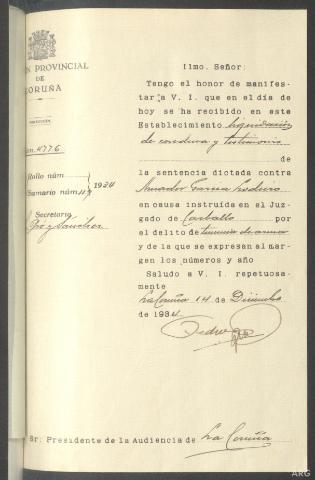 N PROVINCIAL
DE
ORUÑA
4776
Rollo núm
Sumario núm. 117 1934
Secretario
Ilmo. Señor:
Tengo el honor de manifes-
tar a V. I. que en el día de
hoy se ha recibido en este
Establecimiento liquidación
de condena y testimonio
de
la sentencia dictada contra
Amador García
en causa instruída en el Juz-
gado de Carballo por
el delito de tenencia de armas
y de la que se expresan al mar-
gen los números y año
Saludo a V. I. repetuosa-
mente
La Coruña 14 de Diciembre
de 1934.
Pedro
Sr: Presidente de la Audiencia de La Coruña
ARG